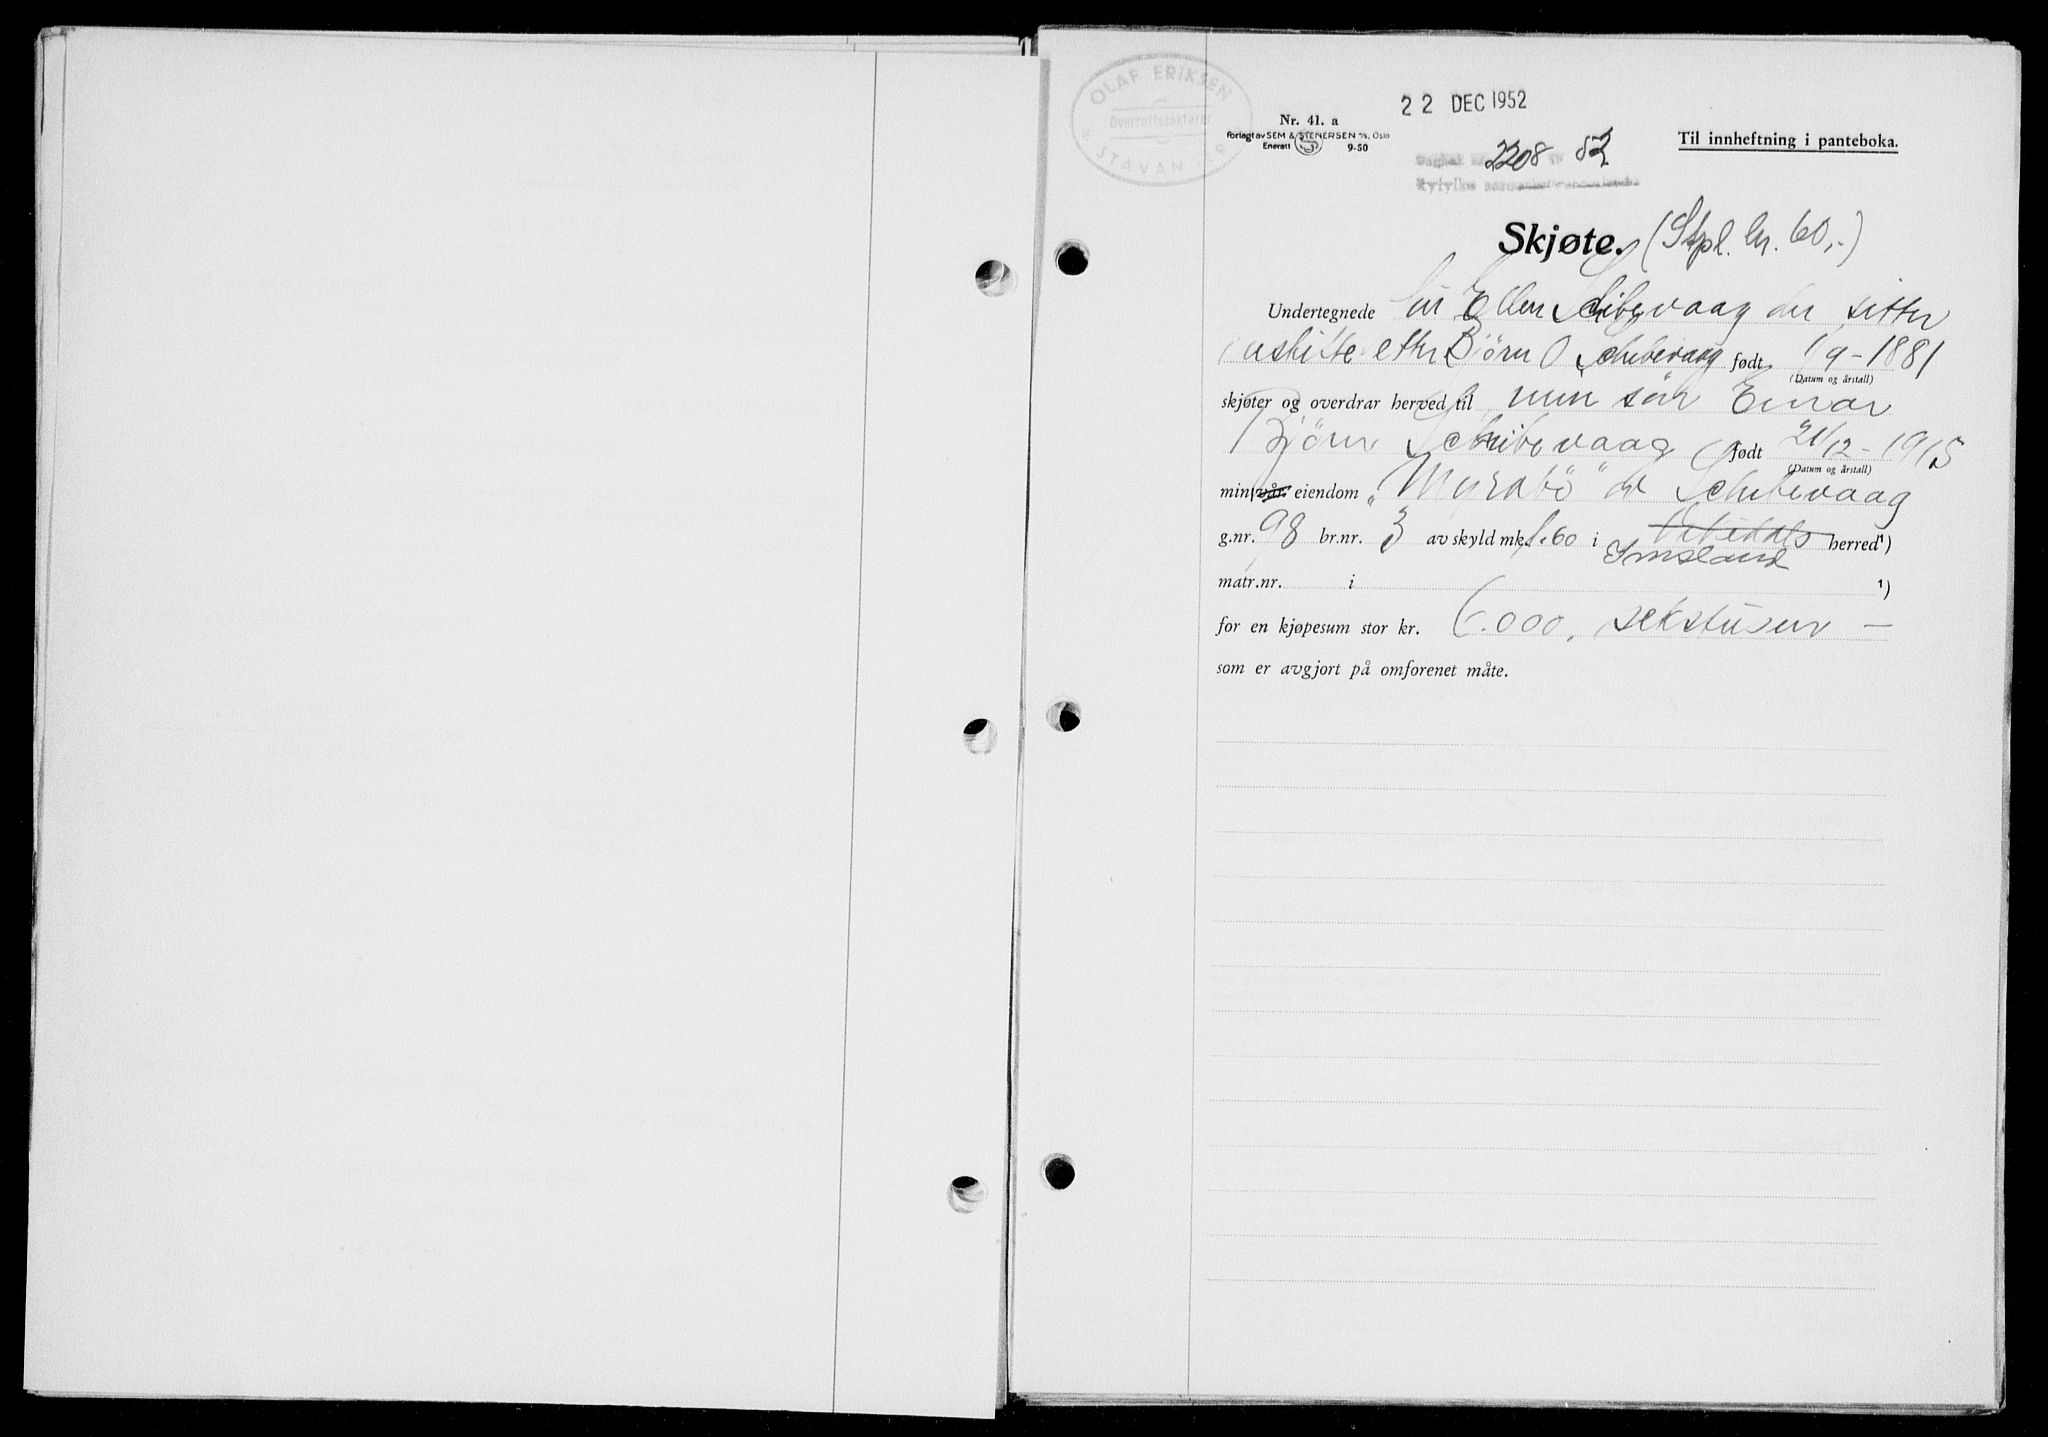 OLAF ERIKSEN
Overrettssakfører
STAVANGER
22 DEC 1952
Nr. 41. a
Forlagt av SEM & STENERSEN A/S, Oslo
Enerett S 9-50
Til innheftning i panteboka.
2208 52
Ryfylke
Skjøte. (Stpl. kr. 60,-)
Undertegnede fru Ellen Schibevaag der sitter
i uskifte etter Bjørn O Schibevaag født 1/9-1881
(Datum og årstall)
skjøter og overdrar herved til min sön Einar
Bjørn Schibevaag født 21/12-1915
(Datum og årstall)
min/vår eiendom „Myrabö" av Schibevaag
g.nr. 98 br.nr. 3 av skyld mk. 1.60 i herred¹)
Imsland
matr.nr. i ¹)
for en kjøpesum stor kr. 6.000, sekstusen —
som er avgjort på omforenet måte.